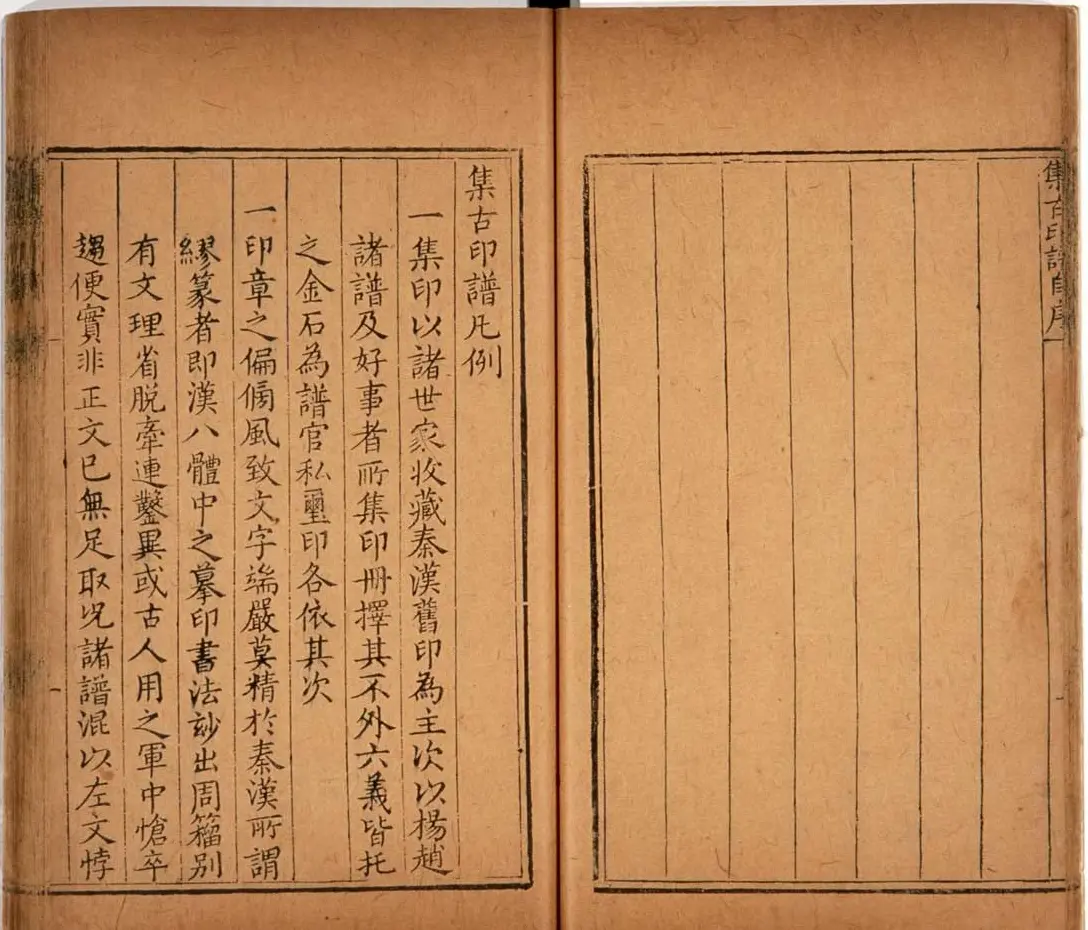 集古印譜自序
集古印譜凡例
一集印以諸世家收藏秦漢舊印為主次以楊趙
諸譜及好事者所集印冊擇其不外六義皆托
之金石為譜官私璽印各依其次
一印章之偏傍風致文字端嚴莫精於秦漢所謂
繆篆者即漢八體中之摹印書法玅出周籀别
有文理省脱牽連鑿異或古人用之軍中愴卒
趨便實非正文已無足取况諸譜混以左文悖